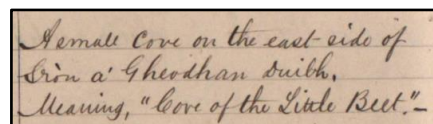 A small cove on the east side of
Sròn a' Gheodhan duibh.
Meaning, "Cove of the Little Beet."—